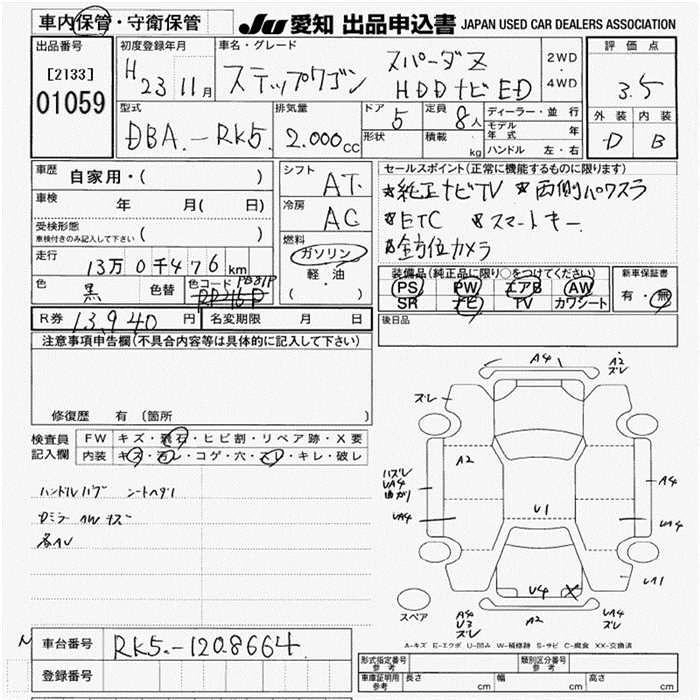 車内保管・守衛保管
JU 愛知 出品申込書 JAPAN USED CAR DEALERS ASSOCIATION
出品番号
[2133]
01059
初度登録年月
H23 11月
車名・グレード
ステップワゴン
スパーダZ
HDDナビED
2WD
4WD
評価点
3.5
外装 内装
D B
型式
DBA-RK5
排気量
2.000cc
ドア
5
形状
定員
8人
積載
kg
ディーラー・並行
モデル年式 年
ハンドル 左・右
車歴 自家用・( )
車検 年 月( 日)
受検形態
車検付きのみ記入して下さい ( )
走行 13万0千476km
色 黒 色替 色コード PB81P
R券 13,940円 名変期限 月 日
シフト
AT
冷房
AC
燃料
ガソリン
軽・油
( ・ )
セールスポイント(正常に機能するものに限ります)
*純正ナビTV *両側パワスラ
*ETC *スマートキー
*全方位カメラ
装備品(純正品に限り○をつけてください)
PS PW エアB AW
SR ナビ TV カワシート
新車保証書
有・無
後日品
注意事項申告欄(不具合内容等は具体的に記入して下さい)
修復歴 有 (箇所 )
検査員記入欄
FW キズ・飛石・ヒビ割・リペア跡・X要
内装 キズ・汚レ・コゲ・穴・スレ・キレ・破レ
ハンドル シートヘタリ
カミラー AWキズ
A4
A2
ズレ
ズレ
A2
ハズレ
UA4
曲がり
UA4
U1
A4
UA4
UA1
U4
X
A4
U3
ズレ
A2
UA4
ズレ
スペア
A-キズ E-エクボ U-凹み W-補修跡 S-サビ C-腐食 XX-交換済
車台番号 RK5-1208664
登録番号
形式指定番号 参考
類別区分番号 参考
車庫証明用 参考
長さ cm
幅 cm
高さ cm